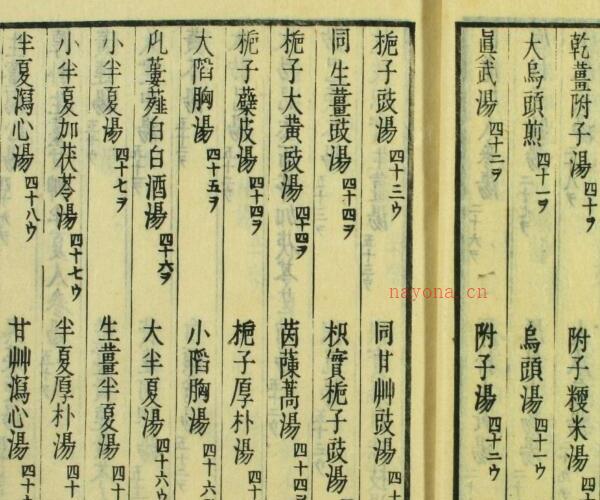 乾薑附子湯 四十ヲ
附子粳米湯 四十
大烏頭煎 四十一ヲ
烏頭湯 四十一ウ
眞武湯 四十二ヲ
附子湯 四十二ウ
梔子豉湯 四十三ウ
同甘艸豉湯 四十
同生薑豉湯 四十四ヲ
枳實梔子豉湯
梔子大黄豉湯 四十四ヲ
茵蔯蒿湯 四十
梔子蘗皮湯 四十四ヲ
梔子厚朴湯 四十
大陷胸湯 四十五ヲ
小陷胸湯 四十六
薤白白酒湯 四十六ヲ
大半夏湯 四十六ウ
小半夏湯 四十七ヲ
生薑半夏湯 四十
小半夏加茯苓湯 四十七ウ
半夏厚朴湯 四十
半夏瀉心湯 四十八ウ
甘艸瀉心湯 四十
nayona.cn